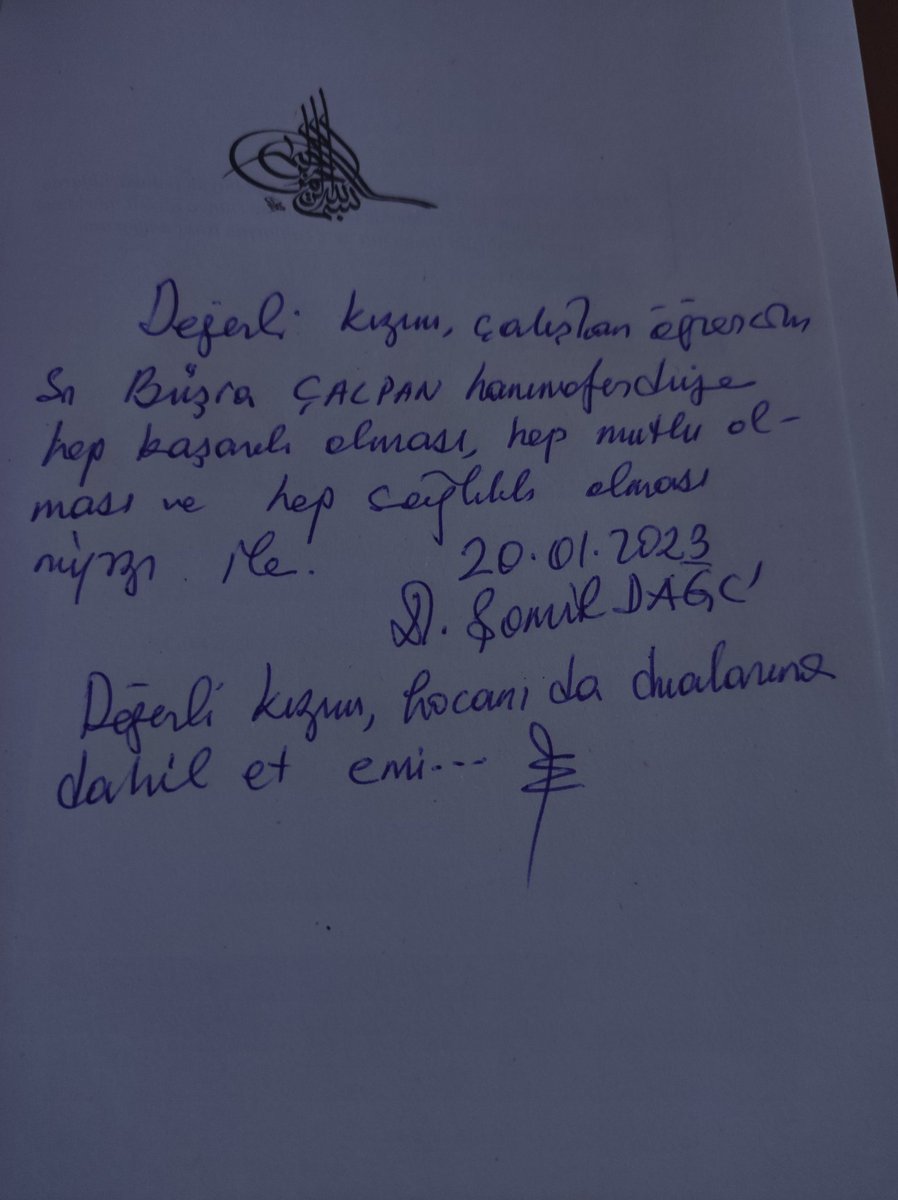 Değerli kızım, çalışkan öğrencim
Sn Büşra ÇALPAN hanımefendiye
hep başarılı olması, hep mutlu ol-
ması ve hep sağlıklı olması
niyazı ile. 20.01.2023
D. Şamil DAĞCI
Değerli kızım, hocanı da dualarına
dahil et emi...